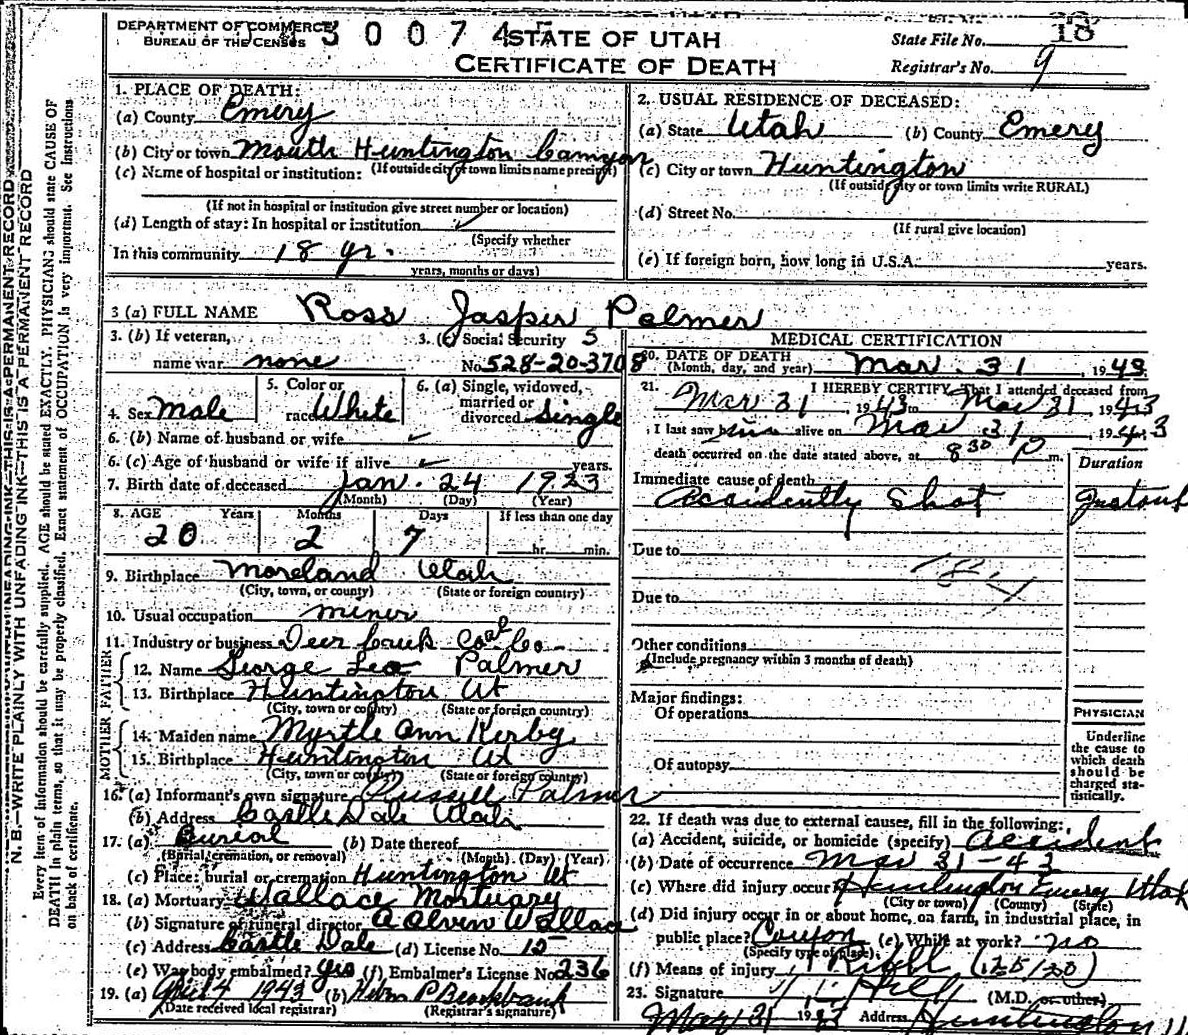 DEPARTMENT OF COMMERCE
BUREAU OF THE CENSUS
3 0 0 7 4
STATE OF UTAH
CERTIFICATE OF DEATH
State File No. 18
Registrar's No. 9
1. PLACE OF DEATH:
(a) County Emery
(b) City or town Mouth Huntington Canyon
(If outside city or town limits name precinct)
(c) Name of hospital or institution:
(If not in hospital or institution give street number or location)
(d) Length of stay: In hospital or institution ✓
(Specify whether
In this community 18 yr.
years, months or days)
2. USUAL RESIDENCE OF DECEASED:
(a) State Utah (b) County Emery
(c) City or town Huntington
(If outside city or town limits write RURAL)
(d) Street No.
(If rural give location)
(e) If foreign born, how long in U.S.A. years.
3 (a) FULL NAME Ross Jasper Palmer
3. (b) If veteran,
name war none
3. (c) Social Security
No. 528-20-3708
4. Sex Male
5. Color or
race White
6. (a) Single, widowed,
married or
divorced Single
6. (b) Name of husband or wife ✓
6. (c) Age of husband or wife if alive ✓ years.
7. Birth date of deceased Jan. 24 1923
(Month) (Day) (Year)
8. AGE Years Months Days If less than one day
20 2 7 hr. min.
9. Birthplace Moreland Utah
(City, town, or county) (State or foreign country)
10. Usual occupation miner
11. Industry or business Deer Creek Coal Co.
FATHER
12. Name George Leo Palmer
13. Birthplace Huntington Ut
(City, town or county) (State or foreign country)
MOTHER
14. Maiden name Myrtle Ann Kerby
15. Birthplace Huntington Ut
(City, town or county) (State or foreign country)
16. (a) Informant's own signature Russell Palmer
(b) Address Castle Dale Utah
17. (a) Burial (b) Date thereof
(Burial, cremation, or removal) (Month) (Day) (Year)
(c) Place: burial or cremation Huntington Ut
18. (a) Mortuary Wallace Mortuary
(b) Signature of funeral director A Alvin Wallace
(c) Address Castle Dale (d) License No. 15
(e) Was body embalmed? Yes (f) Embalmer's License No. 236
19. (a) April 4 1943 (b)
(Date received local registrar) (Registrar's signature)
MEDICAL CERTIFICATION
20. DATE OF DEATH
(Month, day, and year) Mar. 31, 1943
21. I HEREBY CERTIFY That I attended deceased from
Mar 31 1943 to Mar 31, 1943
I last saw him alive on Mar 31 1943
death occurred on the date stated above, at 8 30 P m.
Immediate cause of death
Duration
Accidently Shot
Due to
Due to
Other conditions
(Include pregnancy within 3 months of death)
Major findings:
Of operations
Of autopsy
PHYSICIAN
Underline
the cause to
which death
should be
charged sta-
tistically.
22. If death was due to external causes, fill in the following:
(a) Accident, suicide, or homicide (specify) Accident
(b) Date of occurrence Mar 31-43
(c) Where did injury occur? Huntington Emery Utah
(City or town) (County) (State)
(d) Did injury occur in or about home, on farm, in industrial place, in
public place? (e) While at work? no
(Specify type of place)
(f) Means of injury
23. Signature Hill (M.D. or other)
Mar 31 Address Huntington U
N. B.—WRITE PLAINLY WITH UNFADING INK—THIS IS A PERMANENT RECORD
Every item of information should be carefully supplied. AGE should be stated EXACTLY. PHYSICIANS should state CAUSE OF
DEATH in plain terms, so that it may be properly classified. Exact statement of OCCUPATION is very important. See instructions
on back of certificate.